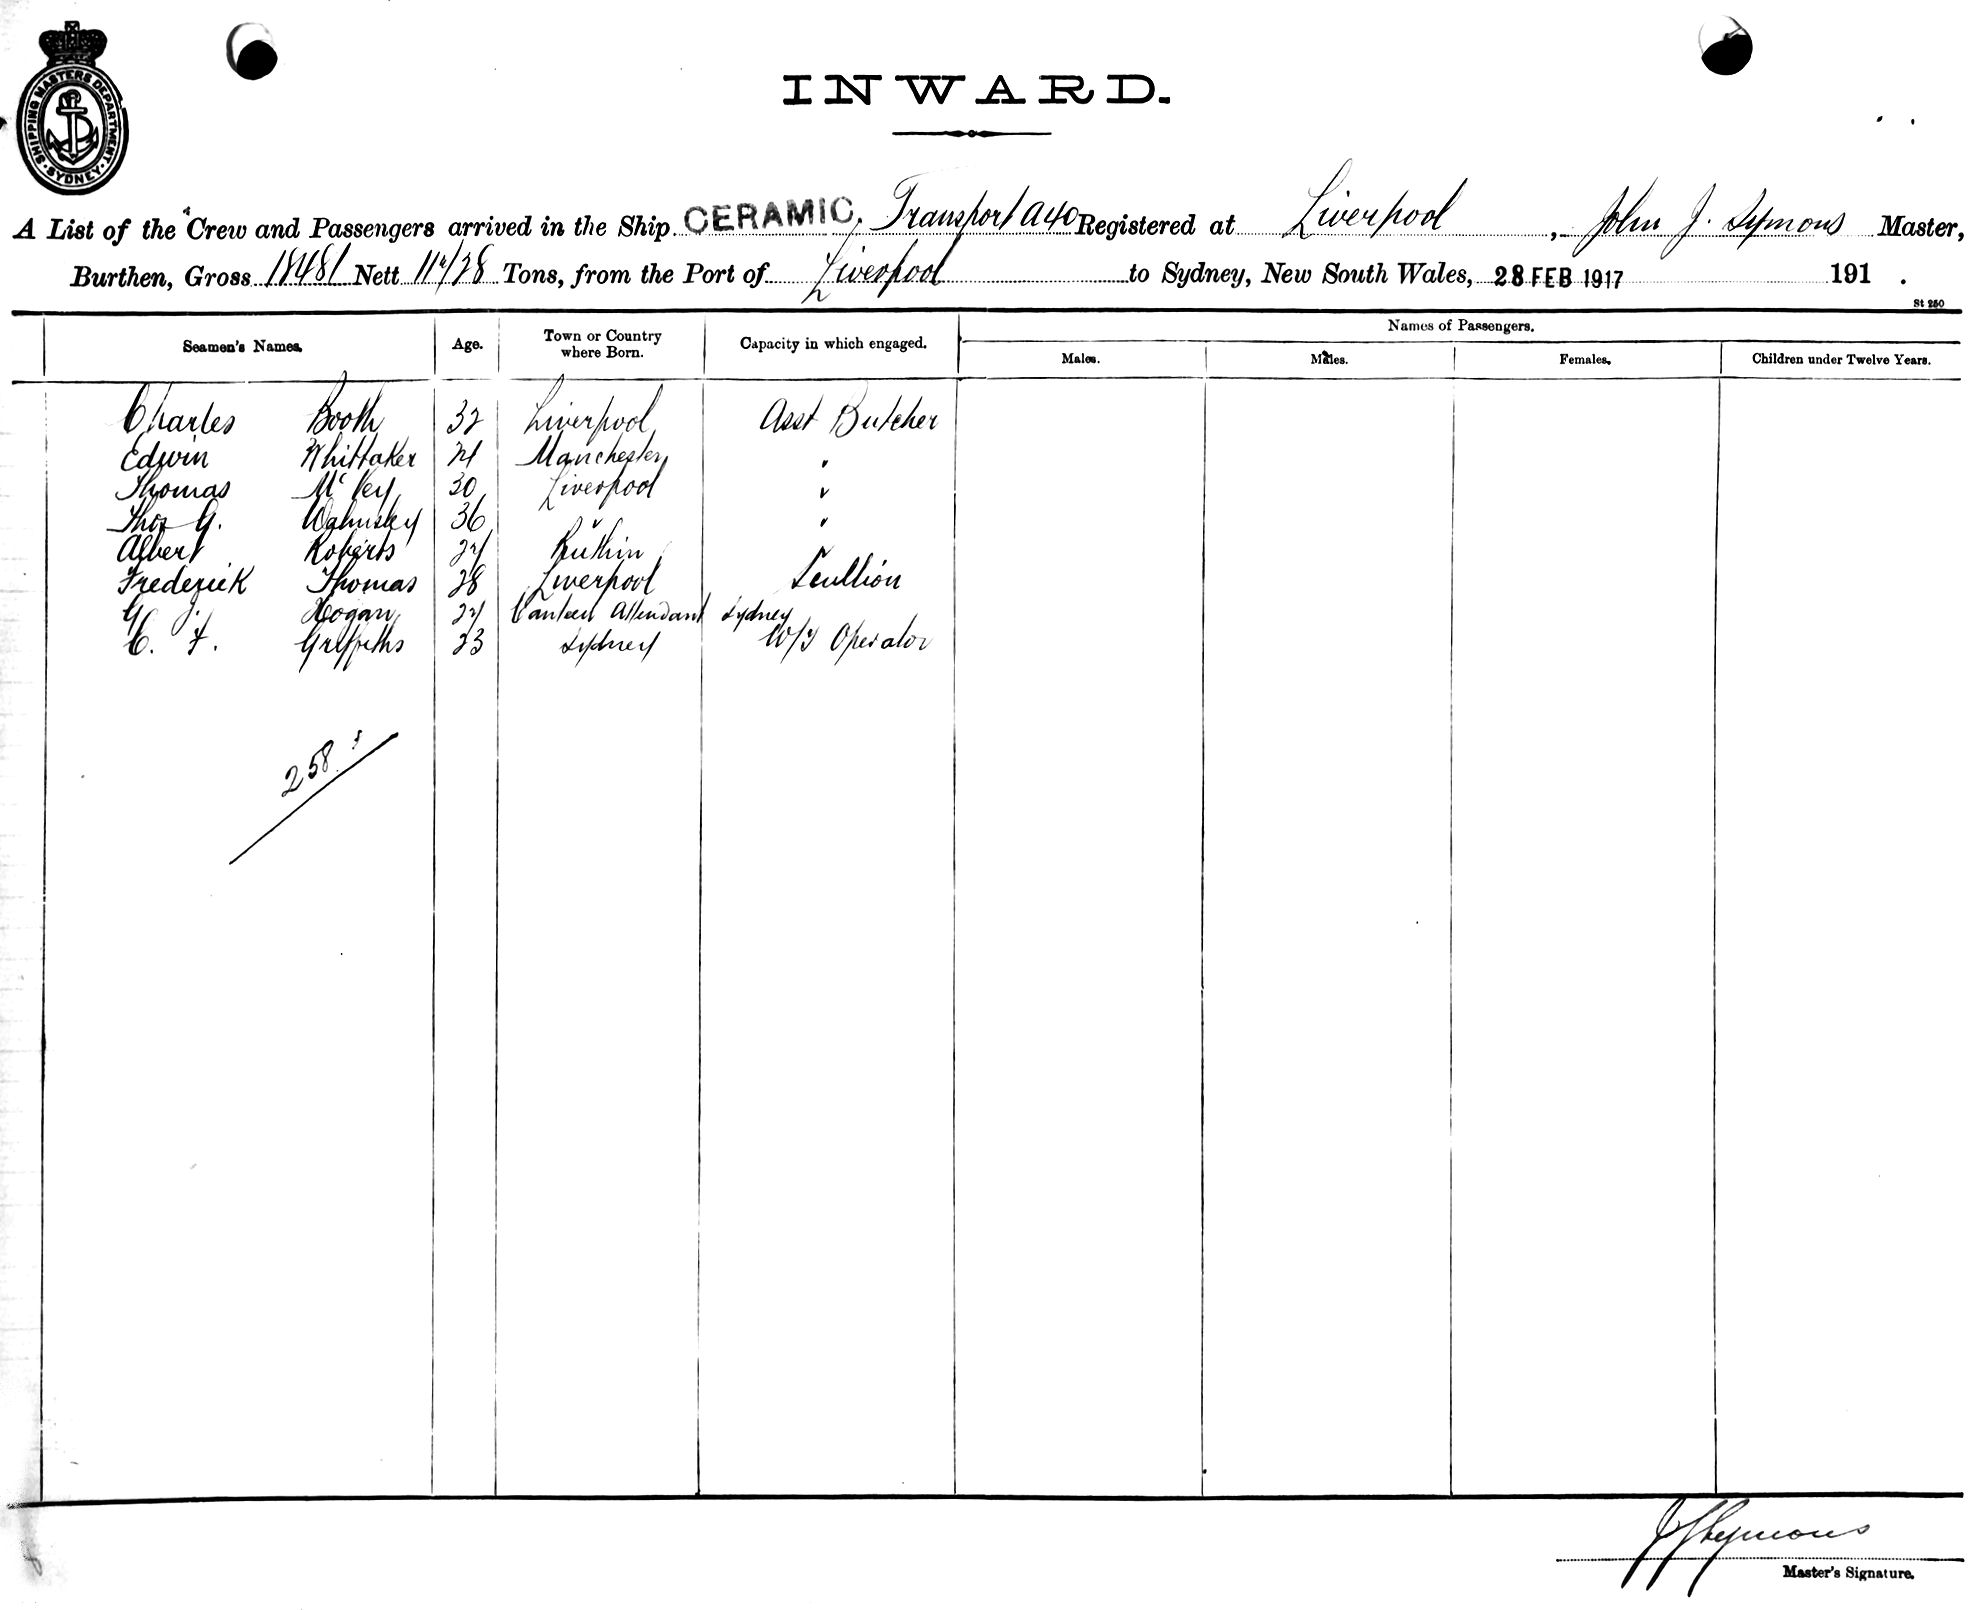 SHIPPING MASTERS DEPARTMENT. SYDNEY.
INWARD.
A List of the Crew and Passengers arrived in the Ship CERAMIC, Transport A40 Registered at Liverpool, John J. Symons Master,
Burthen, Gross 18481 Nett Tons, from the Port of Liverpool to Sydney, New South Wales, 28 FEB 1917 191 .
St 250
Seamen's Names. Age. Town or Country where Born. Capacity in which engaged. Names of Passengers.
Males. Males. Females. Children under Twelve Years.
Charles Booth 32 Liverpool Asst Butcher
Edwin Whittaker 21 Manchester "
Thomas McVey 30 Liverpool "
Thos G. Walmsley 36 " "
Albert Roberts Ruthin "
Frederick Thomas 28 Liverpool Scullion
G J. Hogan Canteen Attendant Sydney
C. F. Griffiths 23 Sydney W/T Operator
258
J J Symons
Master's Signature.